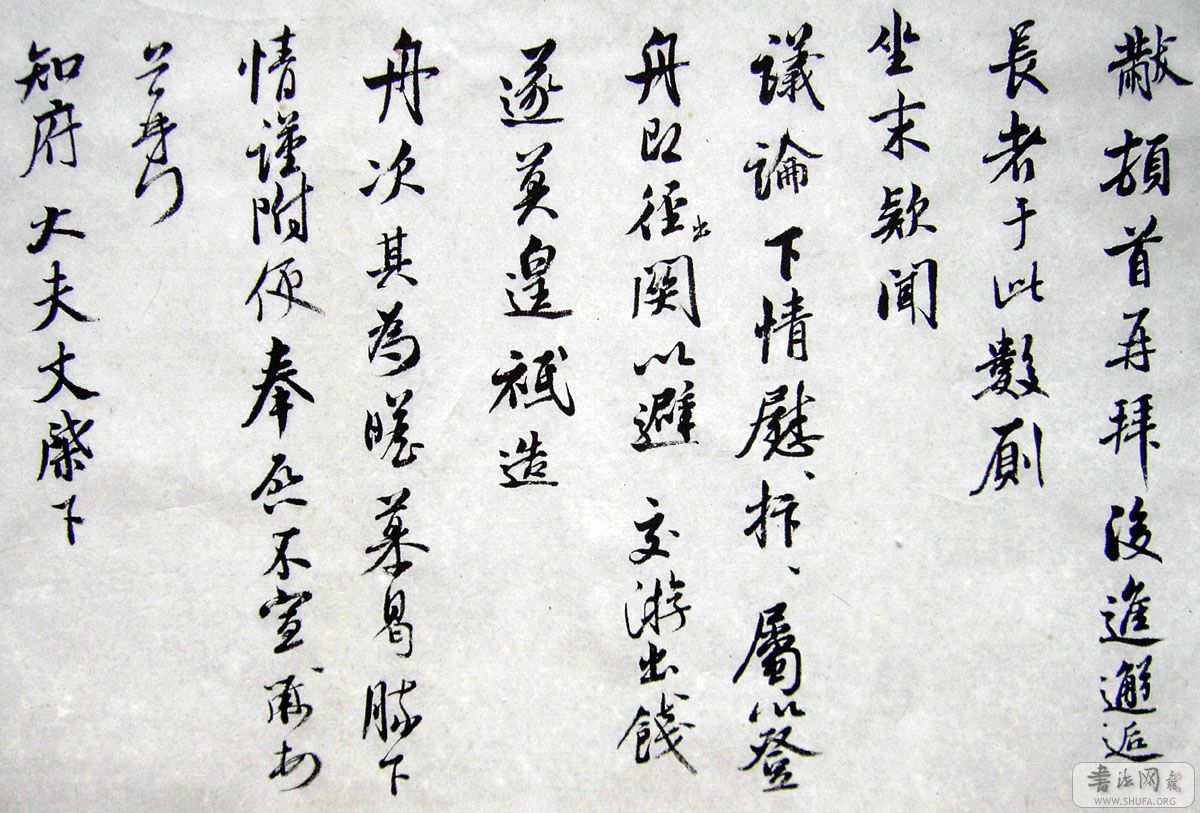 黻頓首再拜後進邂逅
長者于此數厠
坐末款聞
議論下情慰、抃、屬以登
舟即徑出關以避 交游出餞
遂莫遑祗造
舟次其為瞻慕曷勝下
情謹附便奉啓不宣黻
知府大夫丈棨下
書法网
WWW.SHUFA.ORG